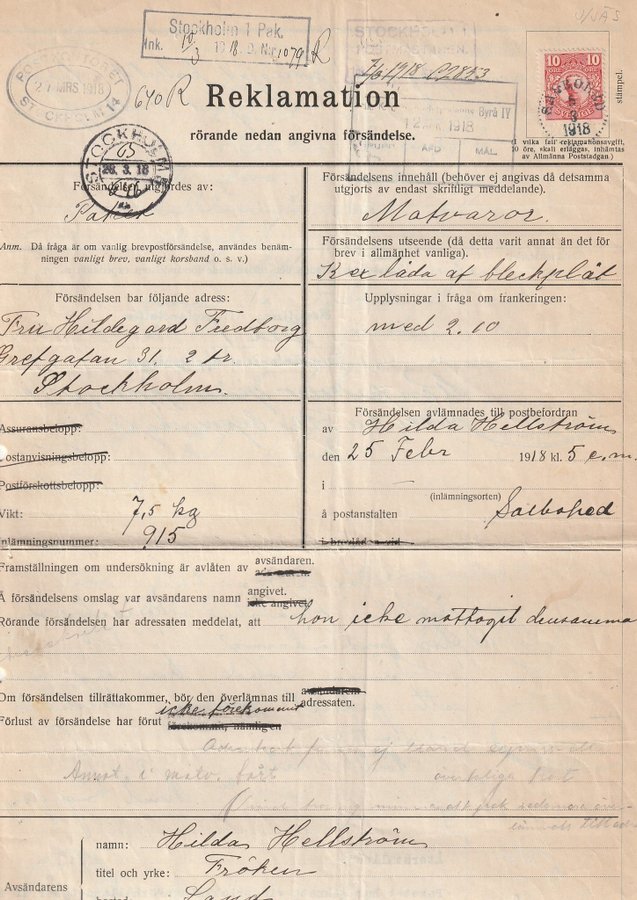 Stockholm 1 Pak.
Ink. 10/3 1918. D. Nr. 1079 R
STOCKHOLM 1
27 MRS 1918
STOCKHOLM 14
640 R
Reklamation
12 APR. 1918
AFD MÅL
10 10
1918
stämpel.
rörande nedan angivna försändelse.
STOCKHOLM
65
28.3.18
Försändelsen utgjordes av:
Paket
Anm. Då fråga är om vanlig brevpostförsändelse, användes benäm-
ningen vanligt brev, vanligt korsband o. s. v.)
Försändelsens innehåll (behöver ej angivas då detsamma
utgjorts av endast skriftligt meddelande).
Matvaror.
Försändelsens utseende (då detta varit annat än det för
brev i allmänhet vanliga).
Kex låda af bleckplåt
Försändelsen bar följande adress:
Fru Hildegard
Grefgatan 31. 2 tr.
Stockholm.
Upplysningar i fråga om frankeringen:
med 2.10
Assuransbelopp:
Postanvisningsbelopp:
Postförskottsbelopp:
Vikt: 7,5 kg
Inlämningsnummer: 915
Försändelsen avlämnades till postbefordran
av Hilda Hellström
den 25 Febr 1918 kl. 5 e.m.
i
(inlämningsorten)
å postanstalten
Framställningen om undersökning är avlåten av avsändaren.
Å försändelsens omslag var avsändarens namn angivet.
icke angivet
Rörande försändelsen har adressaten meddelat, att hon icke mottagit densamma
Om försändelsen tillrättakommer, bör den överlämnas till avsändaren
adressaten.
icke förekommit
Förlust av försändelse har förut förekommit, nämligen
Avsändarens
namn: Hilda Hellström
titel och yrke: Fröken